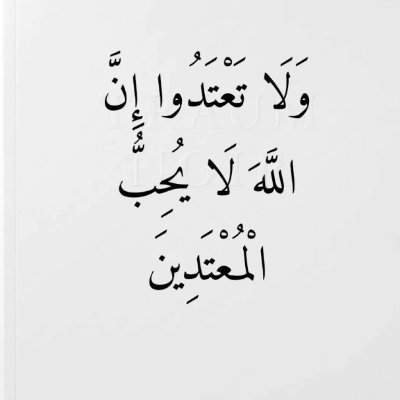 وَلَا تَعْتَدُوا إِنَّ
اللَّهَ لَا يُحِبُّ
الْمُعْتَدِينَ